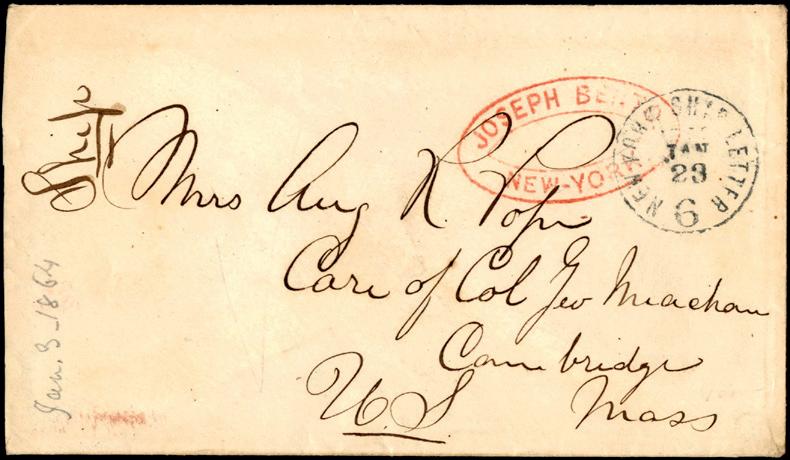 Ship
JOSEPH
NEW-YORK
NEW-YORK SHIP LETTER
JAN
23
6
Mrs Aug R. Pope
Care of Col Geo Meacham
Cambridge
Mass
U.S
Jan. 3-1864